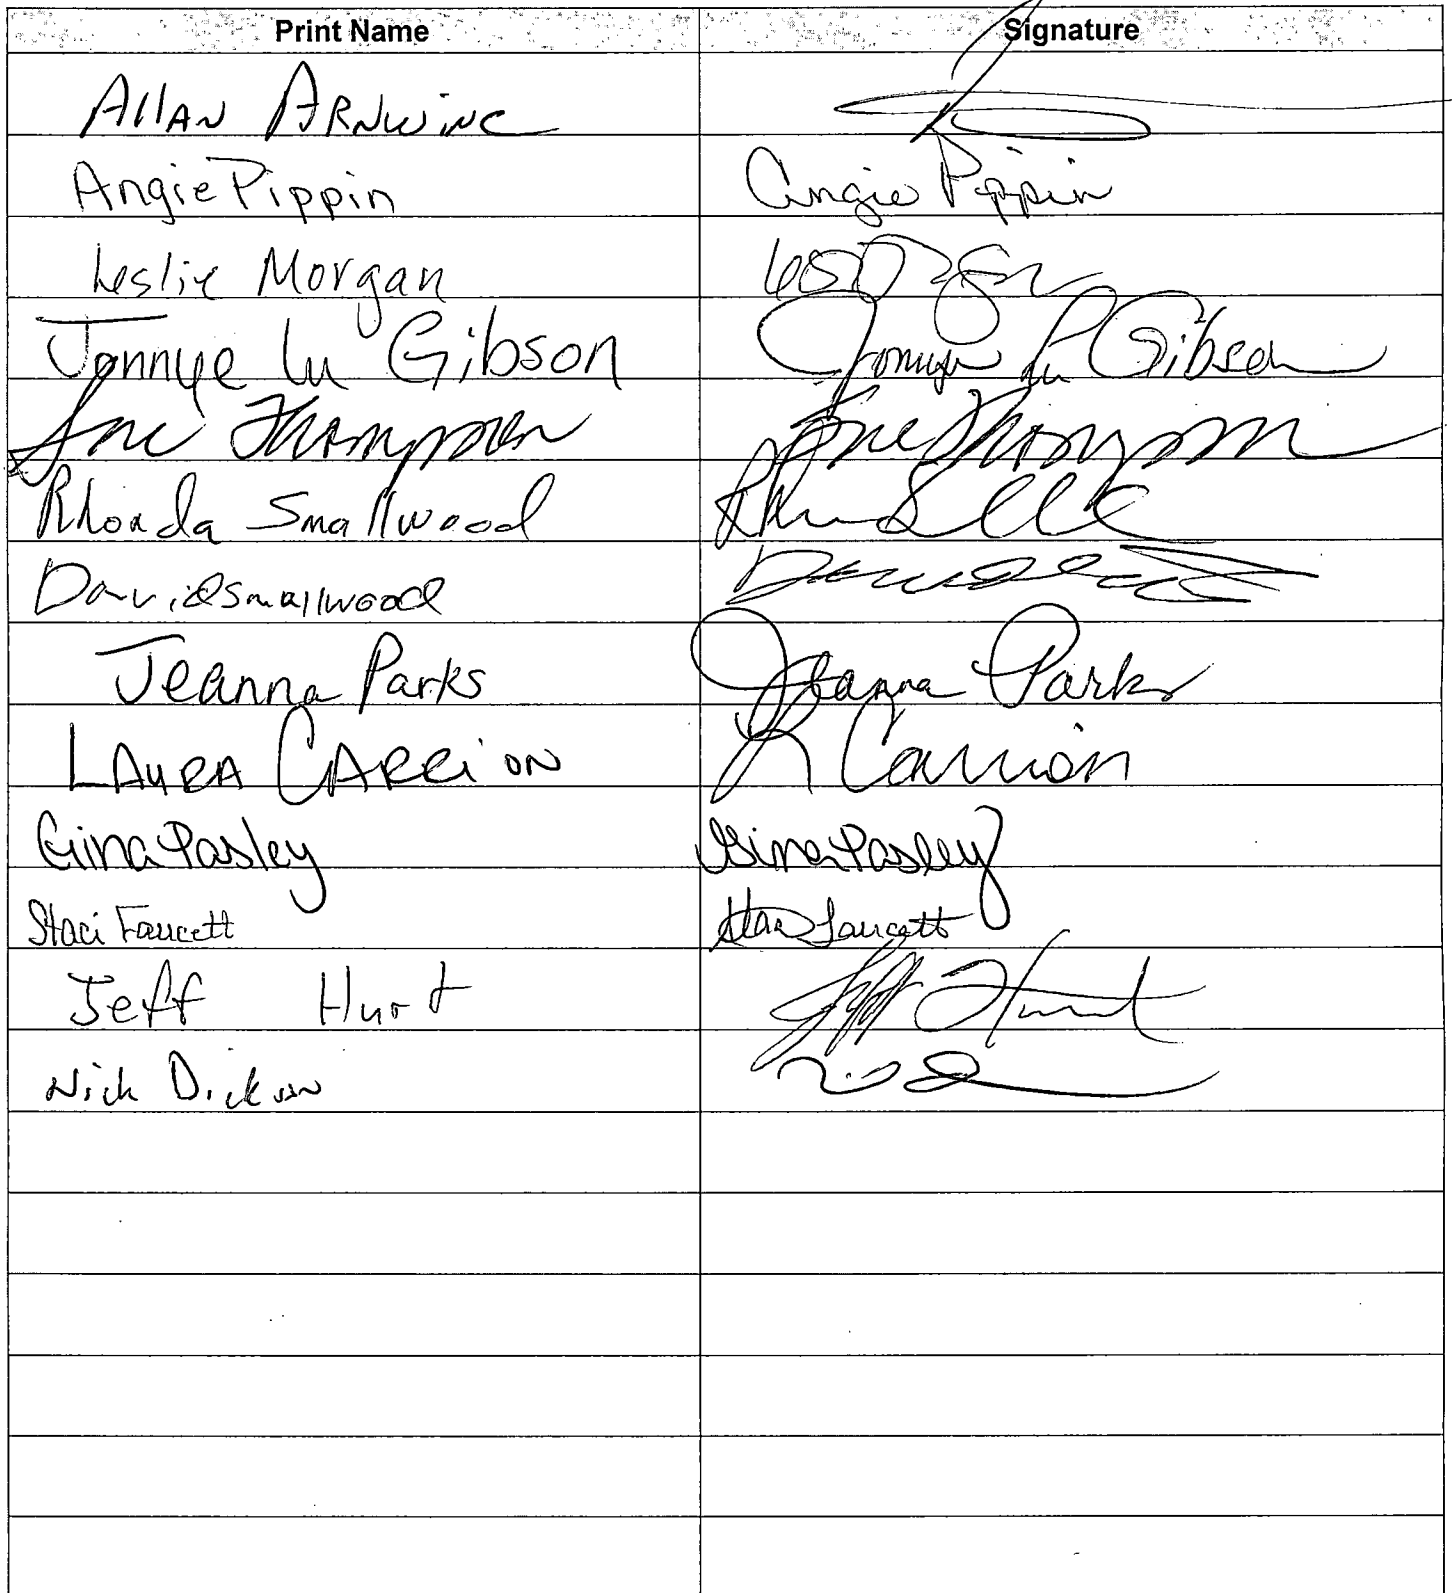 Print Name Signature
Allan Arnwine
Angie Pippin Angie Pippin
Leslie Morgan
Jonnye Lu Gibson Jonnye Lu Gibson
Thompson Thompson
Rhonda Smallwood
David Smallwood
Jeanna Parks Jeanna Parks
LAURA CARRION L Carrion
Gina Pasley Gina Pasley
Staci Faucett Staci Faucett
Jeff Hurt Jeff Hurt
Nick Dickson